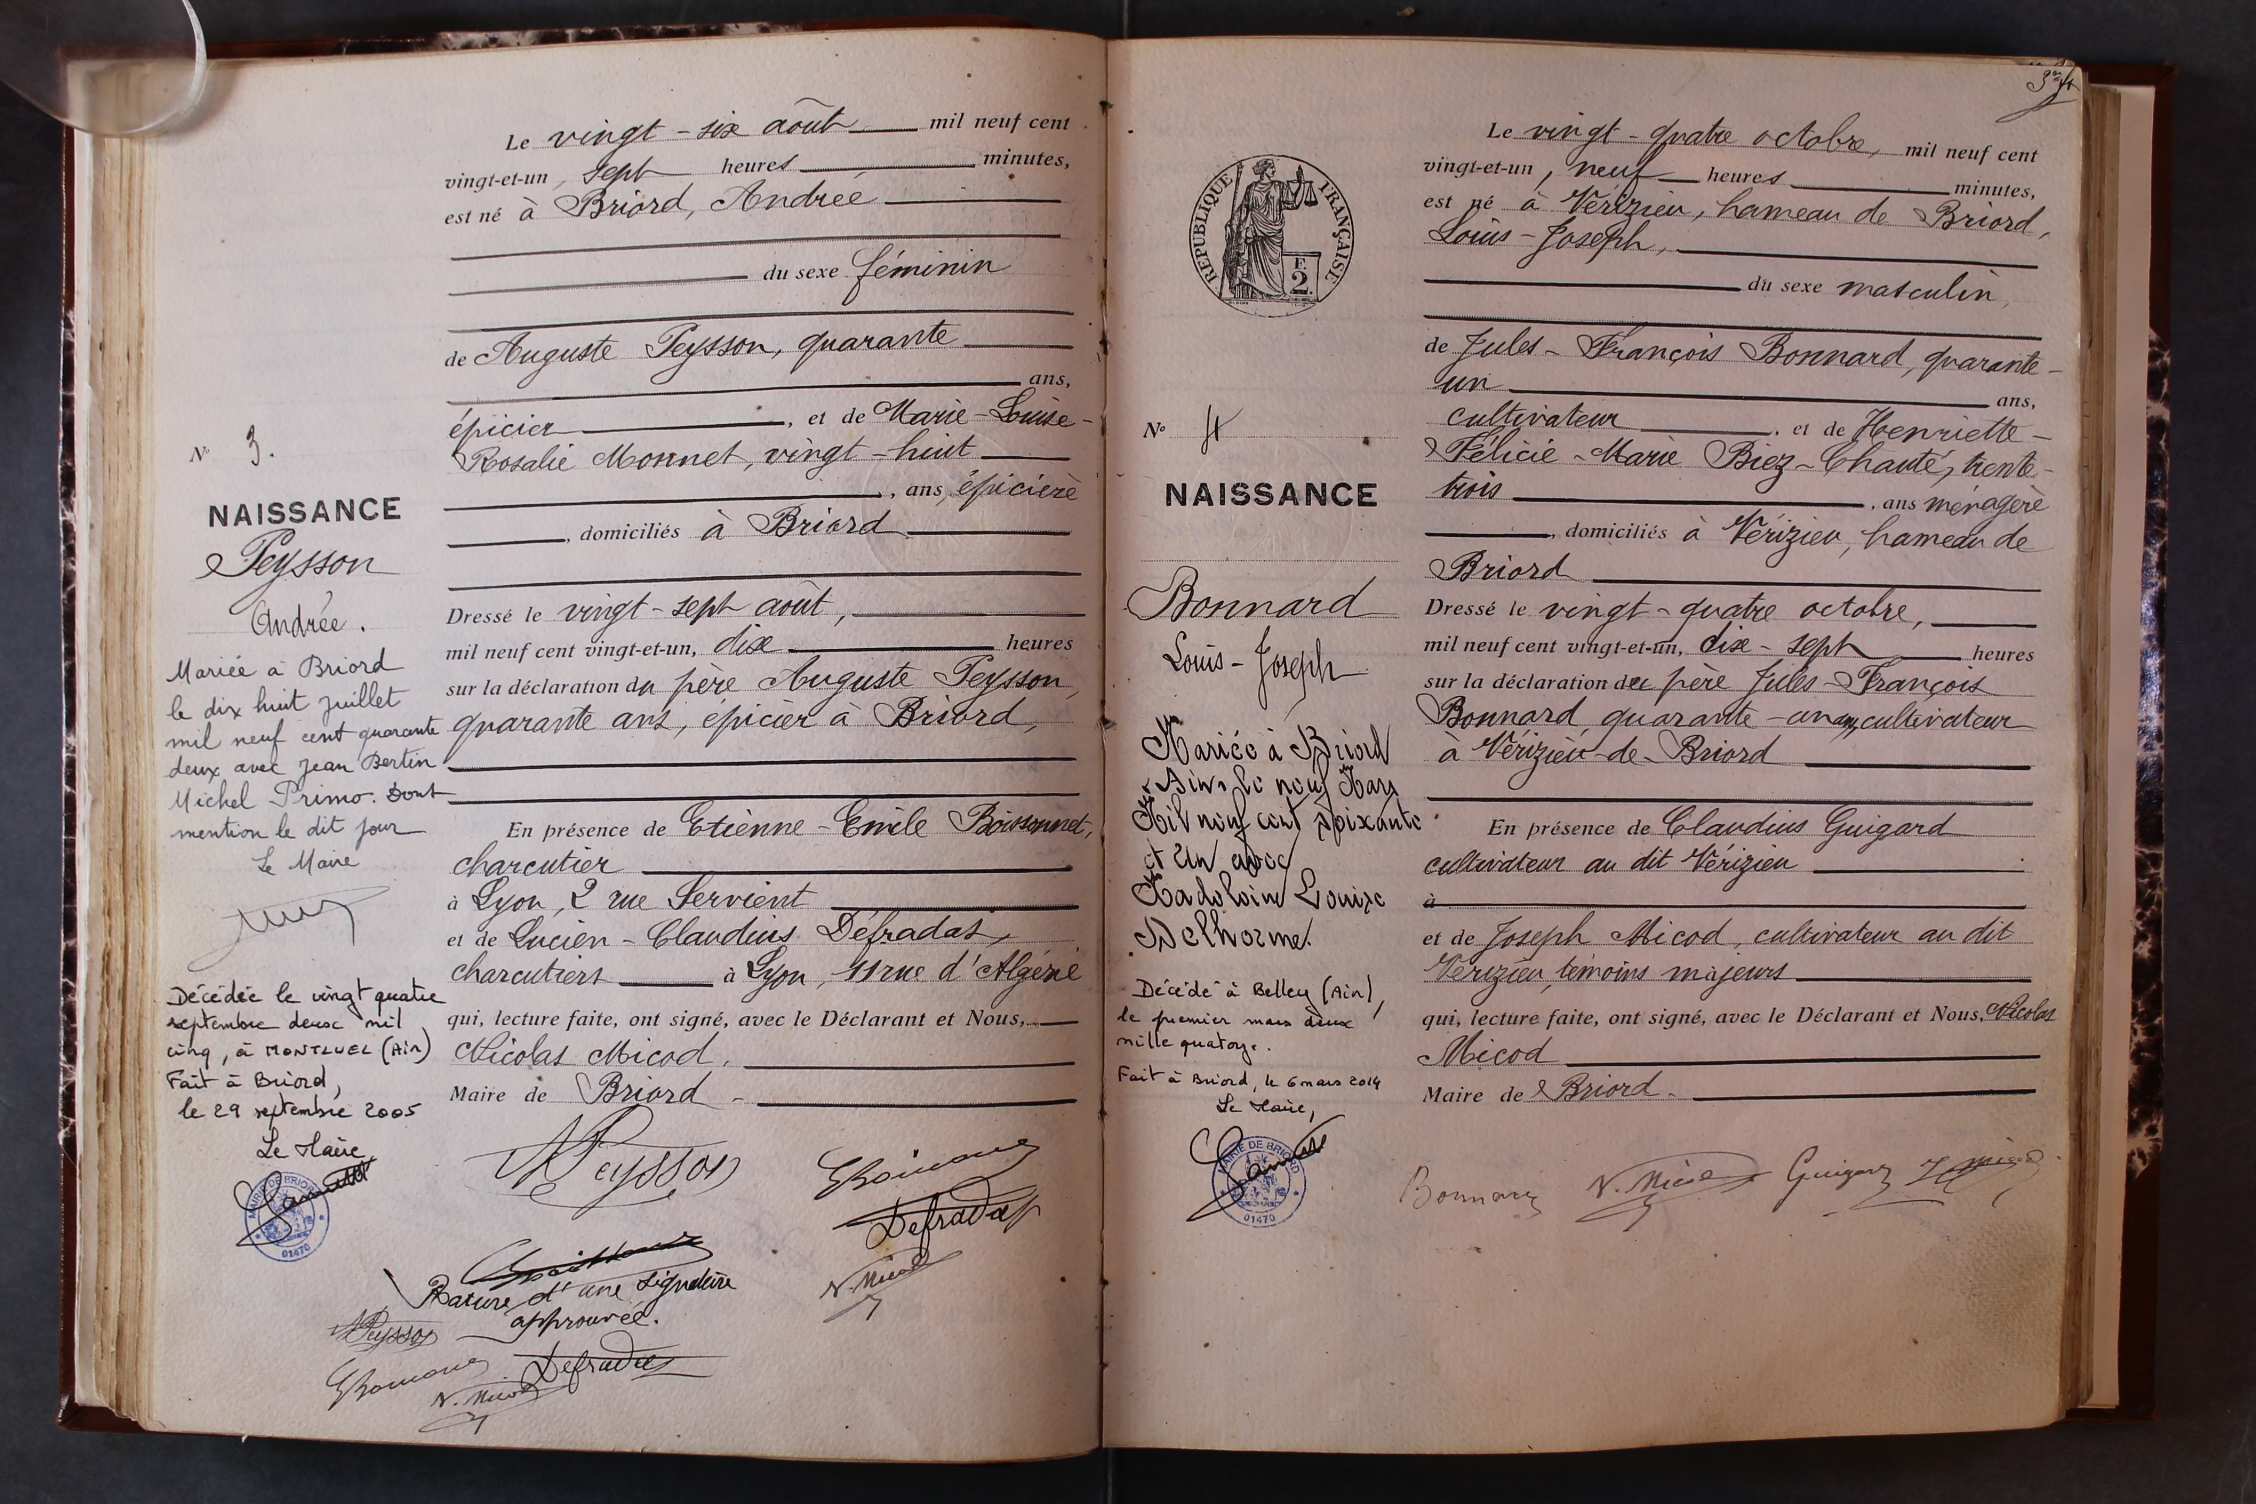 Le vingt-six août mil neuf cent
vingt-et-un, sept heures minutes,
est né à Briord, Andrée
du sexe féminin
de Auguste Peysson, quarante
ans,
épicier, et de Marie-Louise-
Rosalie Monnet, vingt-huit
, ans, épicière
, domiciliés à Briord
Dressé le vingt-sept août,
mil neuf cent vingt-et-un, dix heures
sur la déclaration du père Auguste Peysson,
quarante ans, épicier à Briord,
En présence de Etienne-Emile Boissonnet,
charcutier
à Lyon, 2 rue Servient
et de Lucien-Claudius Défradas,
charcutiers à Lyon, 11 rue d'Algérie
qui, lecture faite, ont signé, avec le Déclarant et Nous,
Nicolas Micod,
Maire de Briord
No 3.
NAISSANCE
Peysson
Andrée.
Mariée à Briord
le dix huit juillet
mil neuf cent quarante
deux avec Jean Bertin
Michel Primo. Dont
mention le dit jour
Le Maire
Décédée le vingt quatre
septembre deux mil
cinq, à MONTLUEL (Ain)
Fait à Briord,
le 29 septembre 2005
Le Maire,
MAIRIE DE BRIORD
01470
Peysson
Defradas
N. Micod
Rature d'une signature
approuvée.
Peysson
Defradas
N. Micod
REPUBLIQUE FRANÇAISE
F.
2.
Le vingt-quatre octobre, mil neuf cent
vingt-et-un, neuf heures minutes,
est né à Vérizieu, hameau de Briord,
Louis-Joseph,
du sexe masculin,
de Jules-François Bonnard, quarante-
un ans,
cultivateur, et de Henriette-
Félicie-Marie Biez-Chauté, trente-
trois, ans ménagère
, domiciliés à Vérizieu, hameau de
Briord
Dressé le vingt-quatre octobre,
mil neuf cent vingt-et-un, dix-sept heures
sur la déclaration du père Jules-François
Bonnard, quarante-un ans, cultivateur
à Vérizieu-de-Briord
En présence de Claudius Guigard
cultivateur au dit Vérizieu
à
et de Joseph Micod, cultivateur au dit
Vérizieu, témoins majeurs
qui, lecture faite, ont signé, avec le Déclarant et Nous, Nicolas
Micod
Maire de Briord.
No 4
NAISSANCE
Bonnard
Louis-Joseph
Mariée à Briord
Ain le neuf Mars
Mil neuf cent soixante
et un avec
Madeleine Louise
Delhorme.
Décédé à Belley (Ain),
le premier mars deux
mille quatorze.
Fait à Briord, le 6 mars 2014
Le Maire,
MAIRIE DE BRIORD
01470
Bonnard N. Micod Guigard J Micod